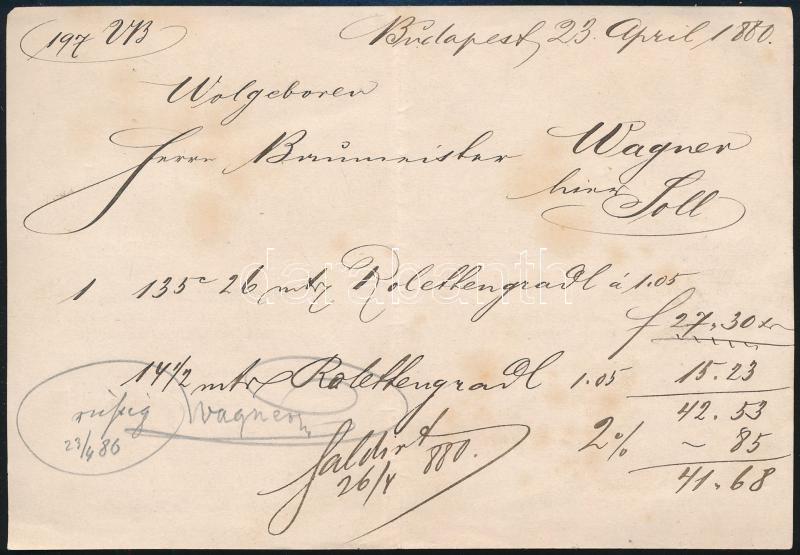 197 VB
Budapest, 23. April, 1880.
Wolgeboren
Herrn Baumeister Wagner
hier Soll
1 135c 26 mtr Rolettengradl á 1.05
f 27.30 xr
14 1/2 mtr Rolettengradl 1.05 15.23
42.53
2% ~ 85
41.68
Saldirt
26/4 880.
Wagner
23/4 86
darabanth